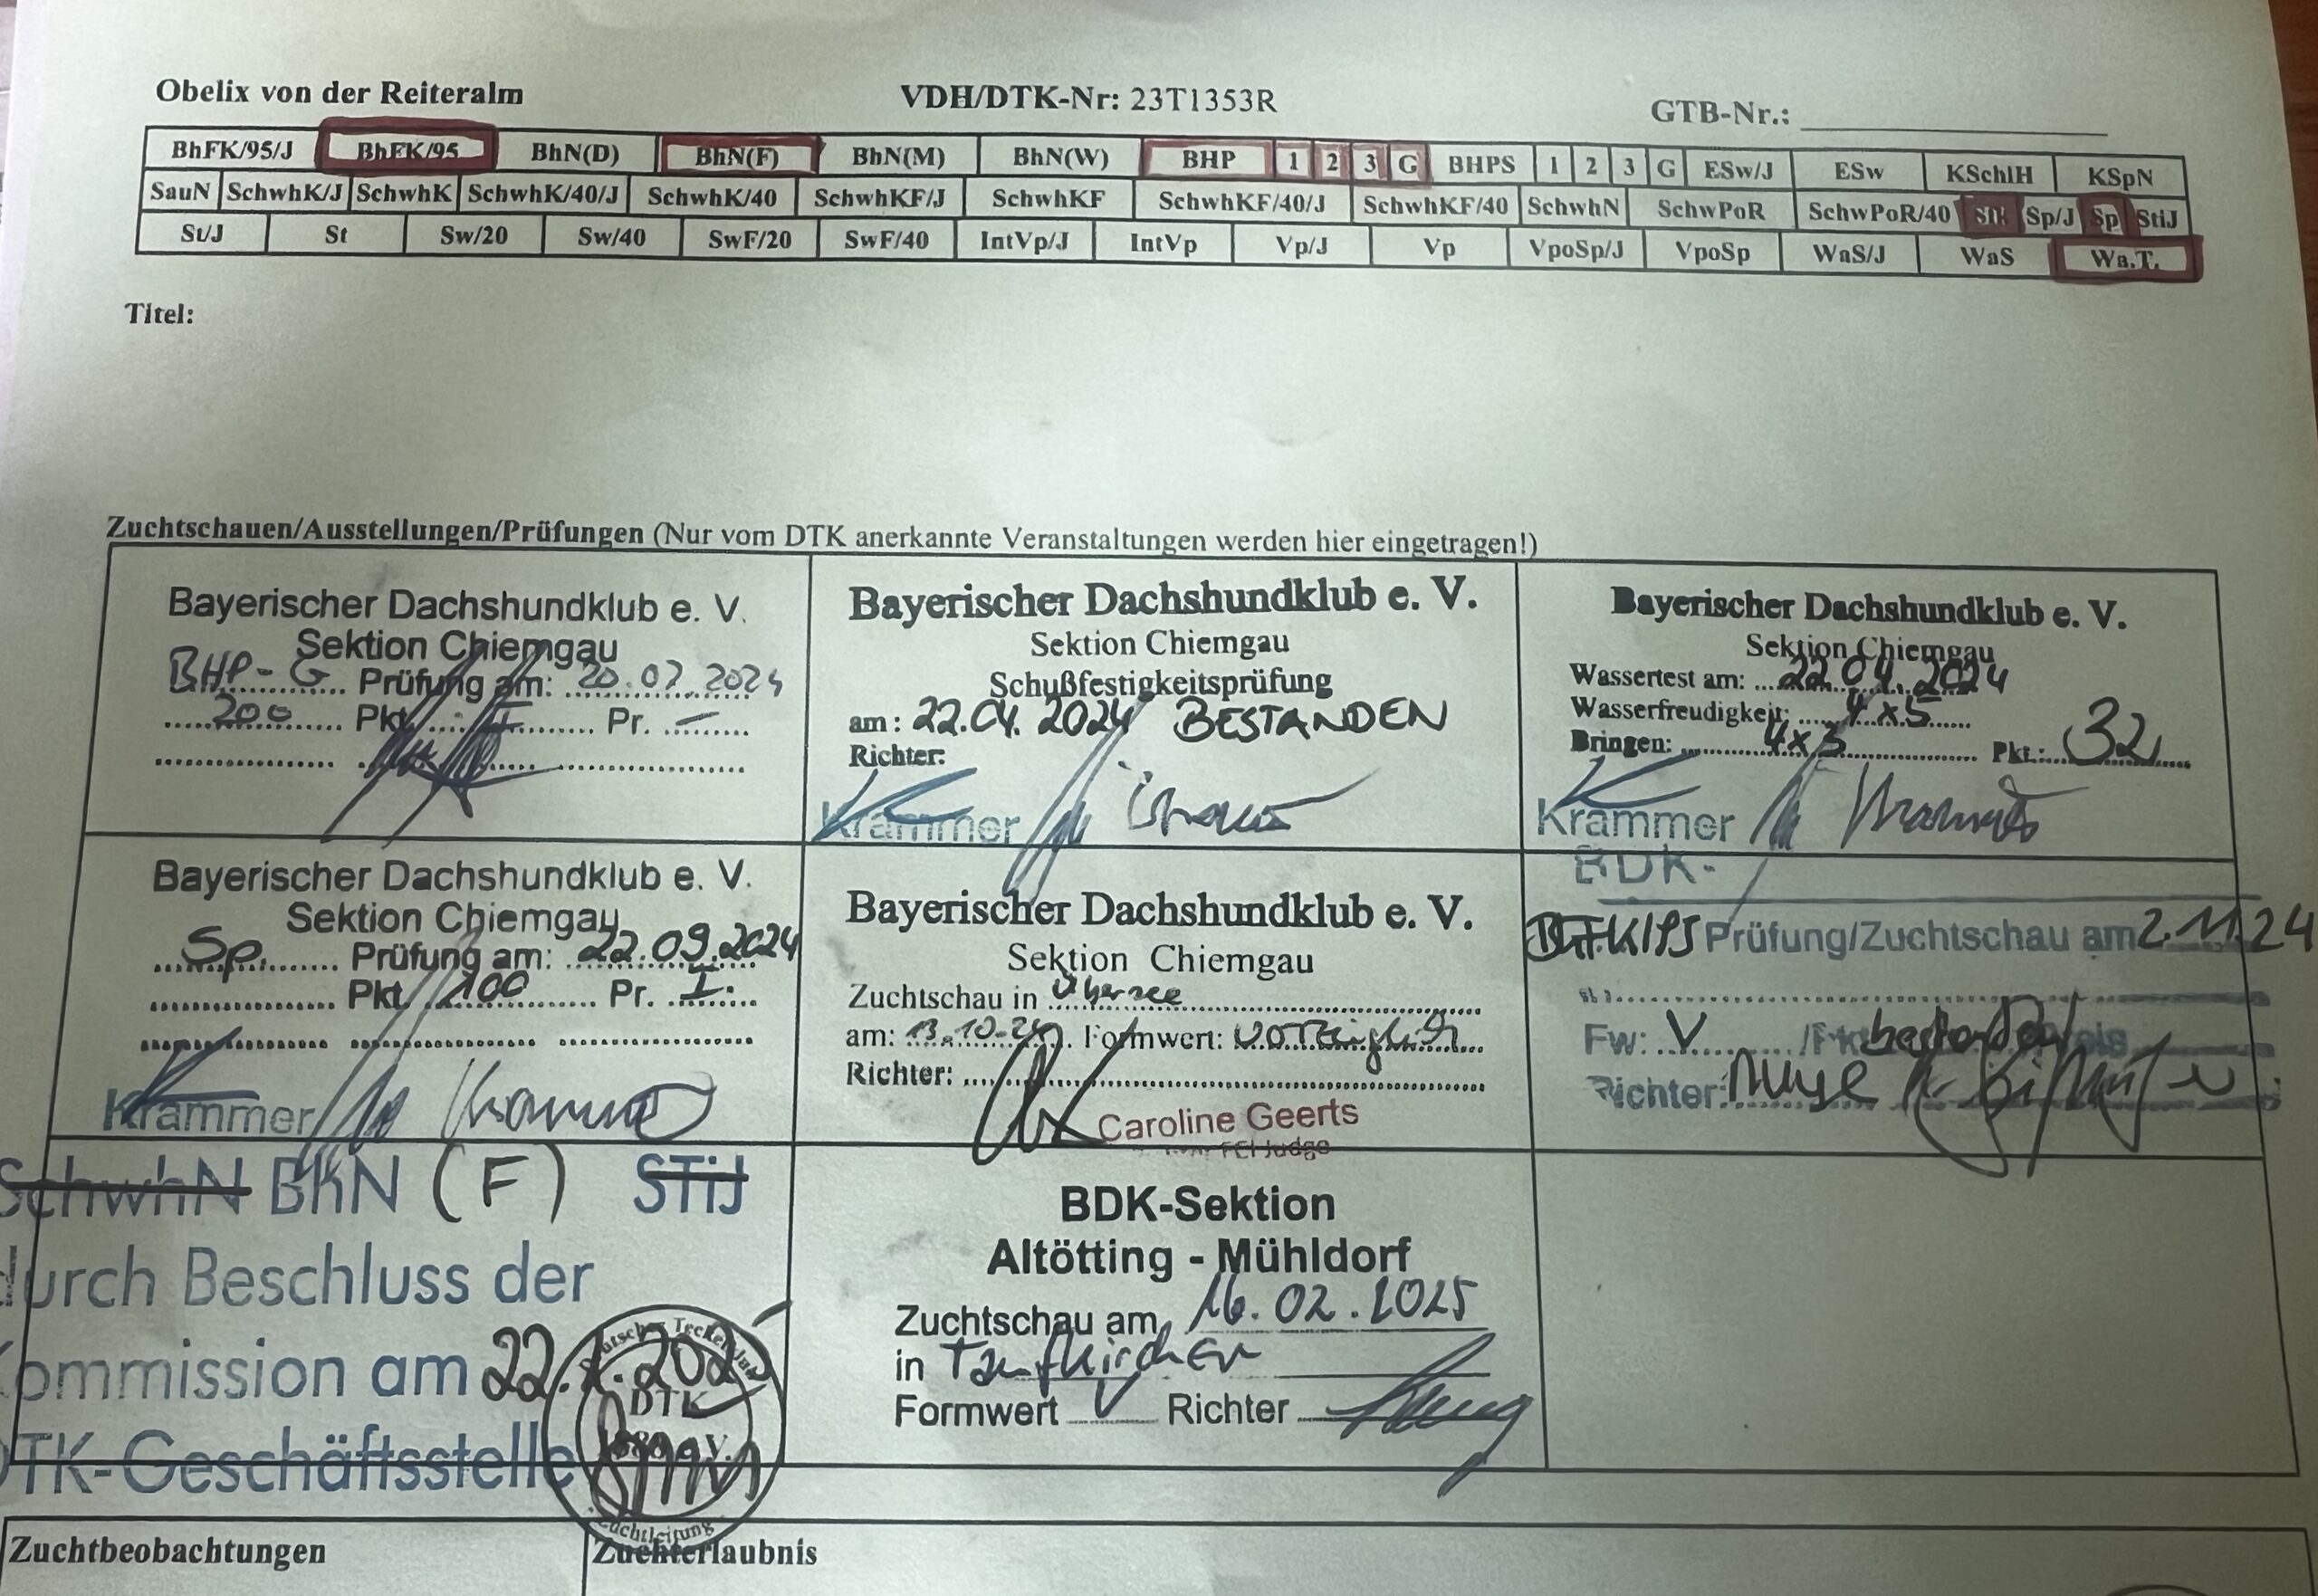 Obelix von der Reiteralm VDH/DTK-Nr: 23T1353R GTB-Nr.:
BhFK/95/J BhFK/95 BhN(D) BhN(F) BhN(M) BhN(W) BHP 1 2 3 G BHPS 1 2 3 G ESw/J ESw KSchlH KSpN
SauN SchwhK/J SchwhK SchwhK/40/J SchwhK/40 SchwhKF/J SchwhKF SchwhKF/40/J SchwhKF/40 SchwhN SchwPoR SchwPoR/40 Sfk Sp/J Sp StiJ
St/J St Sw/20 Sw/40 SwF/20 SwF/40 IntVp/J IntVp Vp/J Vp VpoSp/J VpoSp WaS/J WaS Wa.T.
Titel:
Zuchtschauen/Ausstellungen/Prüfungen (Nur vom DTK anerkannte Veranstaltungen werden hier eingetragen!)
Bayerischer Dachshundklub e. V.
Sektion Chiemgau
BHP-G Prüfung am: 20.07.2024
200 Pkt. I Pr. —
Bayerischer Dachshundklub e. V.
Sektion Chiemgau
Schußfestigkeitsprüfung
am: 22.04.2024 BESTANDEN
Richter:
Krammer
Bayerischer Dachshundklub e. V.
Sektion Chiemgau
Wassertest am: 22.04.2024
Wasserfreudigkeit: 4x5
Bringen: 4x3 Pkt.: 32
Krammer
Bayerischer Dachshundklub e. V.
Sektion Chiemgau
Sp. Prüfung am: 22.09.2024
Pkt. 100 Pr. I.
Krammer
Bayerischer Dachshundklub e. V.
Sektion Chiemgau
Zuchtschau in Übersee
am: 13.10.24 Formwert: vorzüglich
Richter:
Caroline Geerts
FCI Judge
BDK-
Prüfung/Zuchtschau am 2.11.24
Fw: V bestanden
Richter:
SchwhN BhN (F) STiJ
durch Beschluss der
Kommission am 22.
DTK-Geschäftsstelle
Deutscher Teckelklub
DTK
1888 e.V.
Zuchtleitung
BDK-Sektion
Altötting - Mühldorf
Zuchtschau am 16.02.2025
in Taufkirchen
Formwert V Richter
Zuchtbeobachtungen Zuchterlaubnis